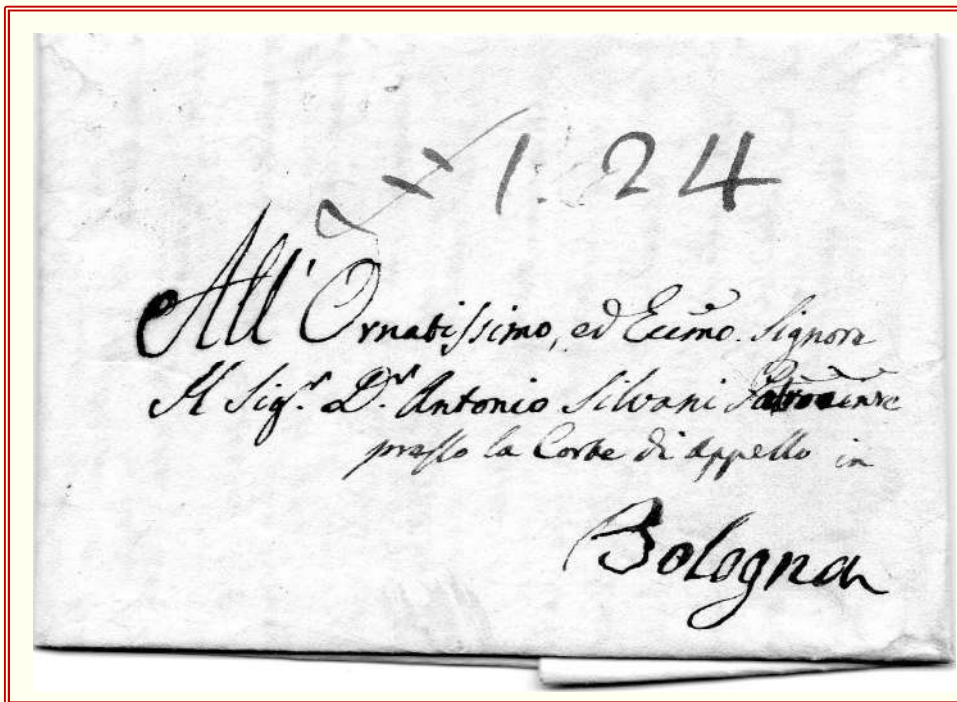 1.24
All'Ornatissimo, ed Ecc͠mo. Signore
Il Sig.r D.r Antonio Silvani Patrocinatore
presso la Corte di Appello in
Bologna